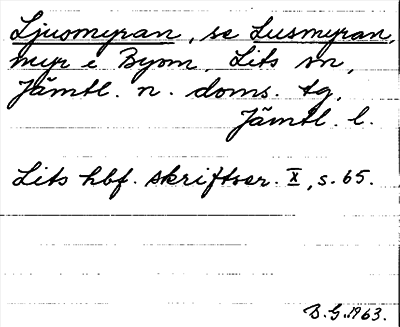 Ljuomyran, se Lusmyran,
myr i Byom, Lits sn,
Jämtl. n. doms. tg,
Jämtl. l.
Lits hbf. skriftser. X, s. 65.
B.G. 1963.